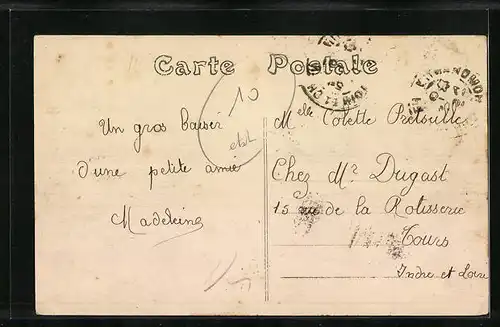 Carte Postale
10
Un gros baiser
d'une petite amie
Madeleine
Melle Colette
Chez Mr Dugast
15 rue de la Rotisserie
Tours
Indre et Loire